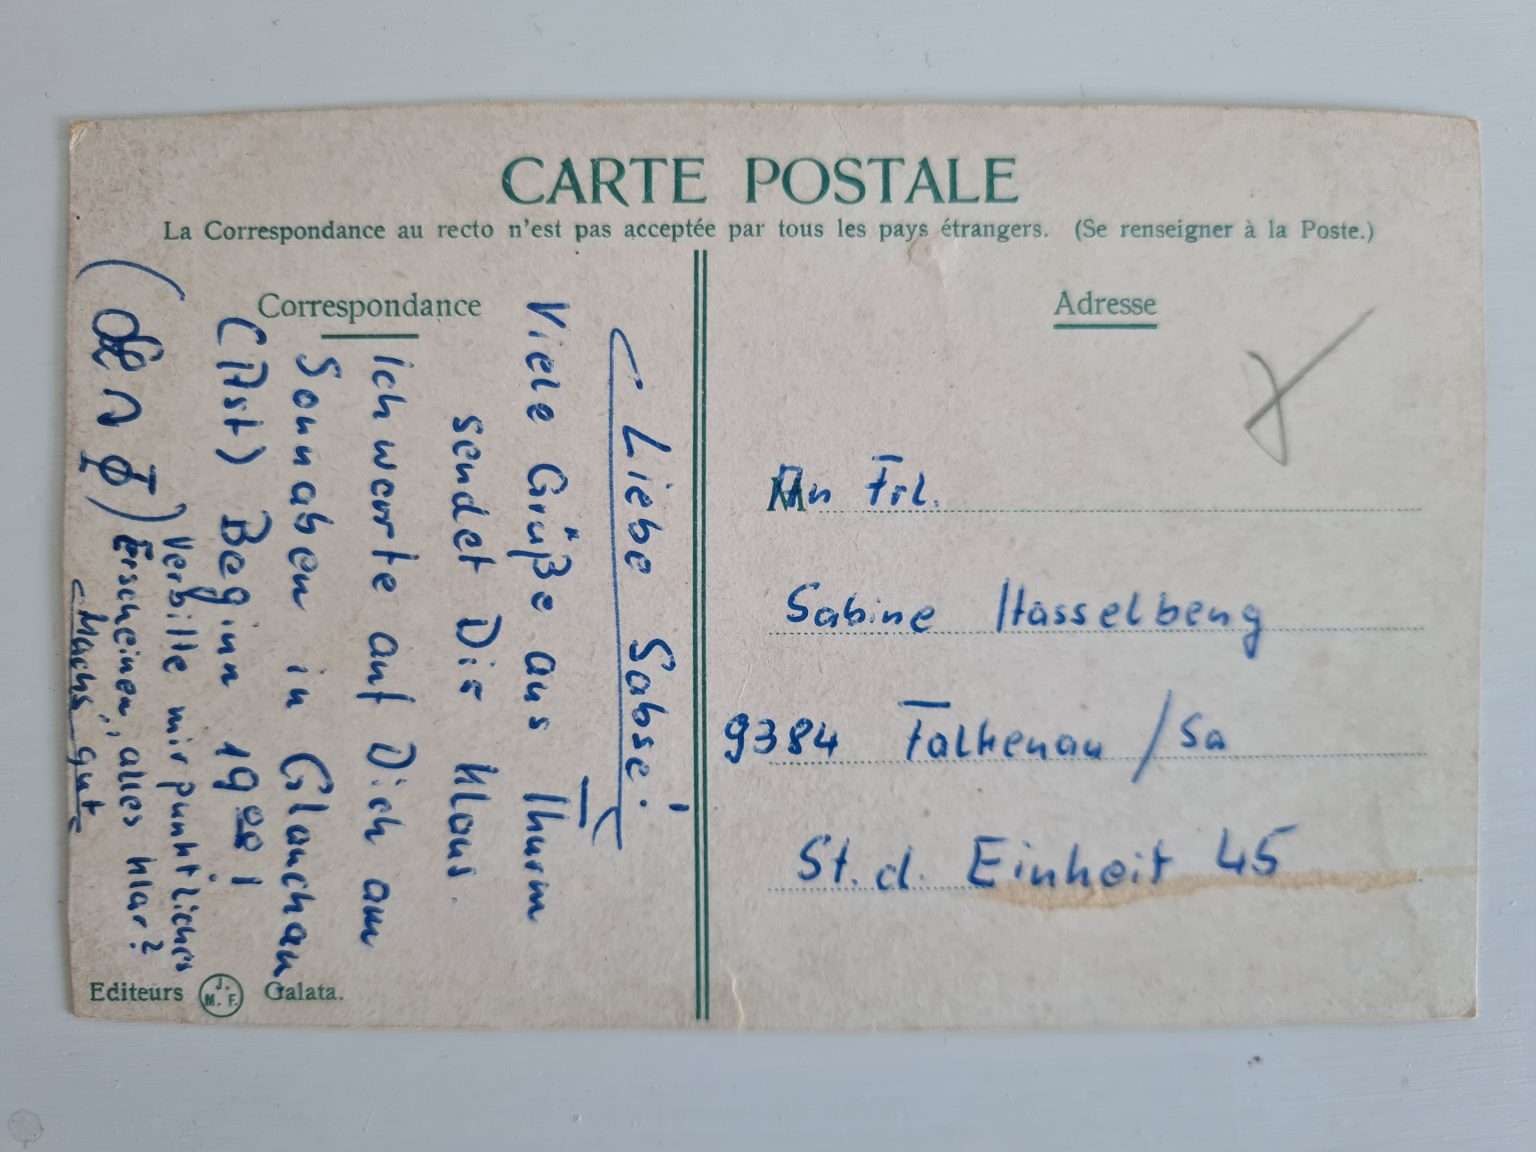 CARTE POSTALE
La Correspondance au recto n'est pas acceptée par tous les pays étrangers. (Se renseigner à la Poste.)
Correspondance
Liebe Sabse!
Viele Grüße aus Thurm
sendet Dir Klaus.
Ich warte auf Dich am
Sonnaben in Glauchau
(Ast) Beginn 19⁰⁰!
Verbitte mir pünktliches
Erscheinen, alles klar?
Machs' gut
Editeurs J. M. F. Galata.
Adresse
An Frl.
Sabine Hasselberg
9384 Falkenau /Sa
St. d. Einheit 45